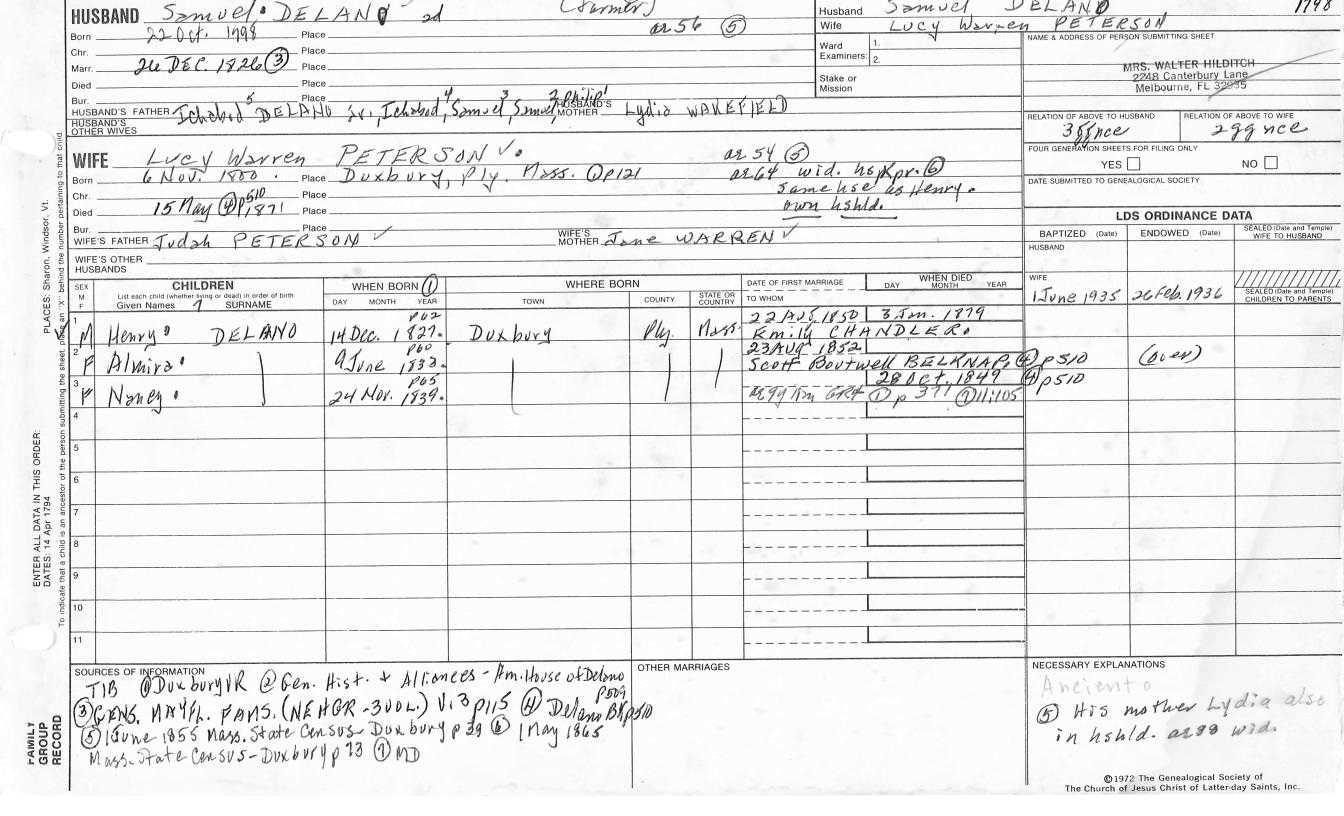 HUSBAND Samuel DELANO 2d (Farmer)
Born 22 Oct. 1798 Place ae 56 ⑤
Chr. Place
Marr. 26 DEC. 1826 ③ Place
Died Place
Bur. Place
HUSBAND'S FATHER Ichabod⁵ DELANO Jr., Ichabod⁴, Samuel³, Samuel², Philip¹ HUSBAND'S MOTHER Lydia WAKEFIELD
HUSBAND'S OTHER WIVES
Husband Samuel DELANO 1798
Wife Lucy Warren PETERSON
Ward Examiners: 1.
2.
Stake or Mission
NAME & ADDRESS OF PERSON SUBMITTING SHEET
MRS. WALTER HILDITCH
2248 Canterbury Lane
Melbourne, FL 32935
RELATION OF ABOVE TO HUSBAND RELATION OF ABOVE TO WIFE
2ggnce
FOUR GENERATION SHEETS FOR FILING ONLY
YES NO
DATE SUBMITTED TO GENEALOGICAL SOCIETY
WIFE Lucy Warren PETERSON ✓ ae 54 ⑤
Born 6 Nov. 1800 Place Duxbury, Ply. Mass. ① p121 ae 64 wid. hskpr. ⑥
Chr. Place same hse as Henry.
Died 15 May ④ p510 1871 Place own hshld.
Bur. Place
WIFE'S FATHER Judah PETERSON ✓ WIFE'S MOTHER Jane WARREN ✓
WIFE'S OTHER HUSBANDS
LDS ORDINANCE DATA
BAPTIZED (Date) ENDOWED (Date) SEALED (Date and Temple) WIFE TO HUSBAND
HUSBAND
WIFE 1 June 1935 26 Feb. 1936 SEALED (Date and Temple) CHILDREN TO PARENTS
SEX M F CHILDREN WHEN BORN ① WHERE BORN DATE OF FIRST MARRIAGE WHEN DIED
List each child (whether living or dead) in order of birth
Given Names SURNAME DAY MONTH YEAR TOWN COUNTY STATE OR COUNTRY TO WHOM DAY MONTH YEAR
1 p62 22 Aug 1850 3 Jan. 1879
M Henry DELANO 14 Dec. 1827. Duxbury Ply. Mass. Emily CHANDLER.
2 p60 23 AUG 1852
F Almira 9 June Scott Boutwell BELKNAP. ④ p510 (over)
3 p65 28 Oct. 1849 ④ p510
F Nancy 24 Nov. 1839. ① p 371 ⑦ 11:105
4
5
6
7
8
9
10
11
SOURCES OF INFORMATION
TIB ① Duxbury VR ② Gen. Hist. & Alliances - Am. House of Delano p509
③ GENS. MAYFL. FAMS. (NEHGR - 3 VOL.) V. 3 p115 ④ Delano BK p510
⑤ 1 June 1855 Mass. State Census - Duxbury p 39 ⑥ 1 May 1865
Mass. State Census - Duxbury p 23 ⑦ MD
OTHER MARRIAGES
NECESSARY EXPLANATIONS
⑤ His mother Lydia also
in hshld. wid.
©1972 The Genealogical Society of
The Church of Jesus Christ of Latter-day Saints, Inc.
PLACES: Sharon, Windsor, Vt.
ENTER ALL DATA IN THIS ORDER:
DATES: 14 Apr 1794
To indicate that a child is an ancestor of the person submitting the sheet, place an "X" behind the number pertaining to that child.
FAMILY
GROUP
RECORD